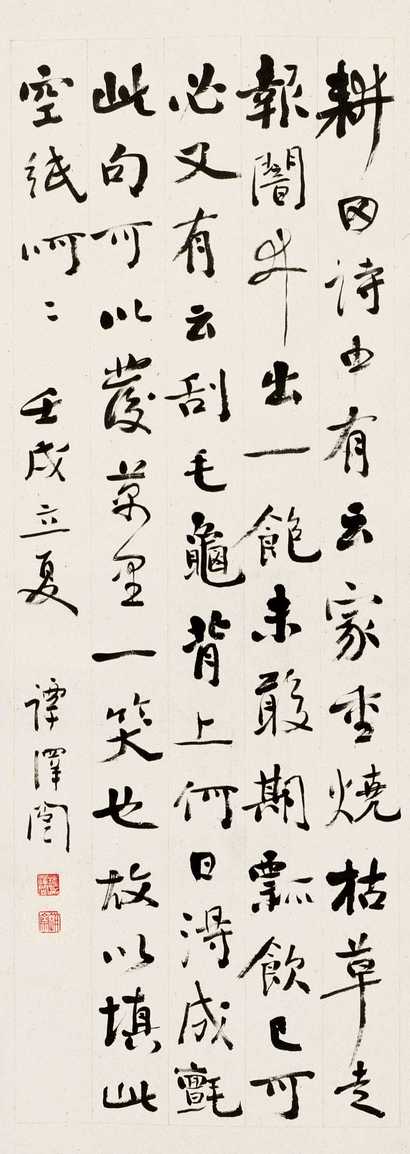 耕田詩中有云家童燒枯草走
報闇井出一飽未敢期瓢飲已可
必又有云刮毛龜背上何日得成氈
此句可以發萬里一笑也故以填此
空紙呵〻 壬戌立夏 譚澤闓